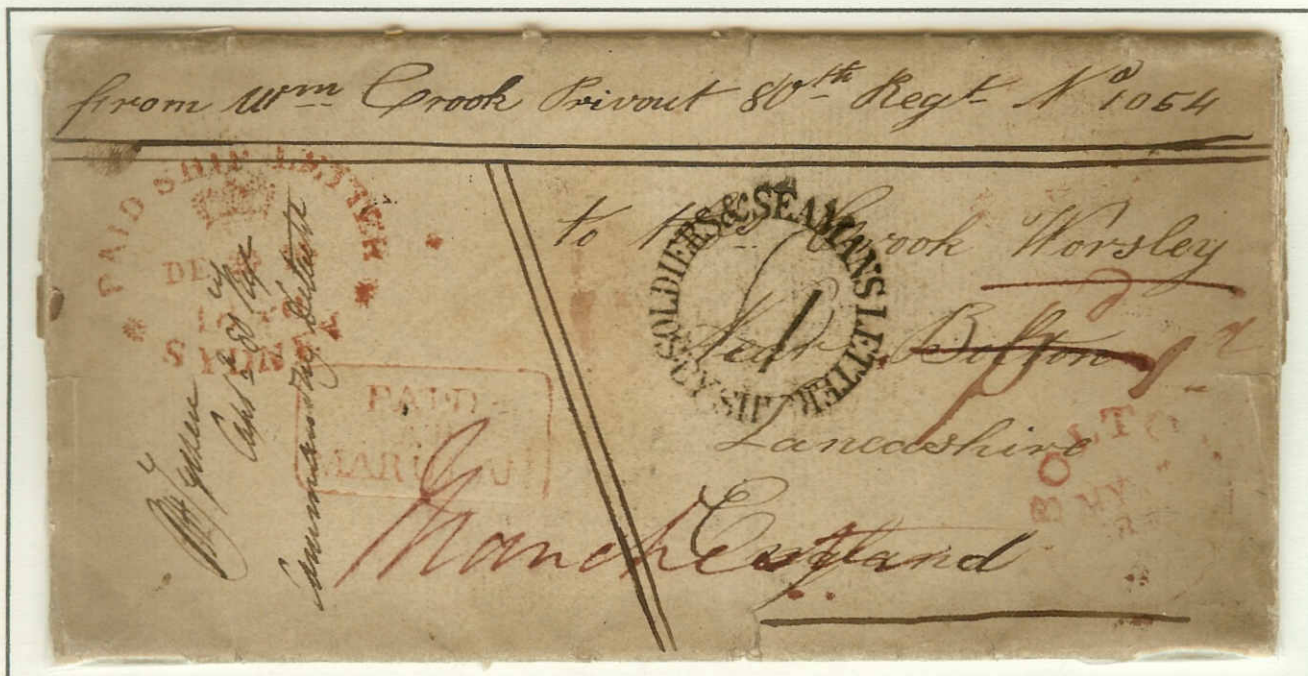 from Wm Crook Privout 80th Regt No 1054
PAID SHIP LETTER
DE
SYDNEY
Capt 80 Regt
Commanding Detach
PAID
MARULAN
SOLDIERS & SEAMANS LETTER
to Crook Worsley
Near Bolton
1d
Lancashire
BOLTO
MY
England
Manch